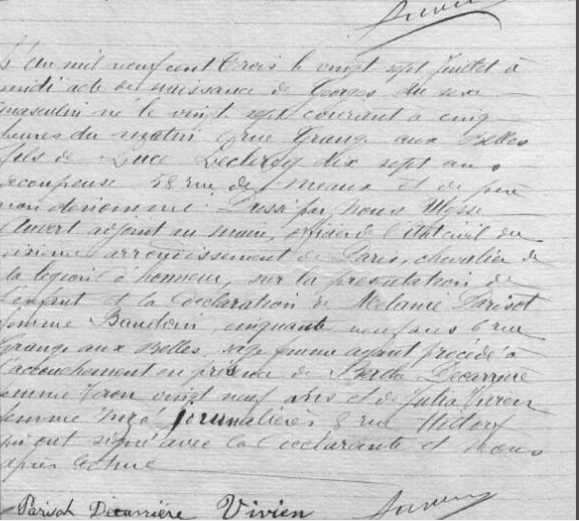 L'an mil neuf cent trois le vingt sept Juillet à
midi acte de naissance de Georges du sexe
masculin né le vingt sept courant à cinq
heures du matin 6 rue Grange aux Belles
fils de Luce Leclercq dix sept ans
découpeuse 58 rue de Meaux et de père
non dénommé. Dressé par Nous Ulysse
adjoint au maire, officier de l'état civil du
dixième arrondissement de Paris, chevalier de
la légion d'honneur, sur la présentation de
l'enfant et la déclaration de Mélanie Parisot
femme Baudoin, cinquante neuf ans 6 rue
Grange aux Belles, sage femme ayant procédé à
l'accouchement en présence de Berthe Décarrière
femme vingt neuf ans et de Julia Vivien
femme journalières 8 rue Hittorf
qui ont signé avec la déclarante et Nous
après lecture
Parisot Décarrière Vivien